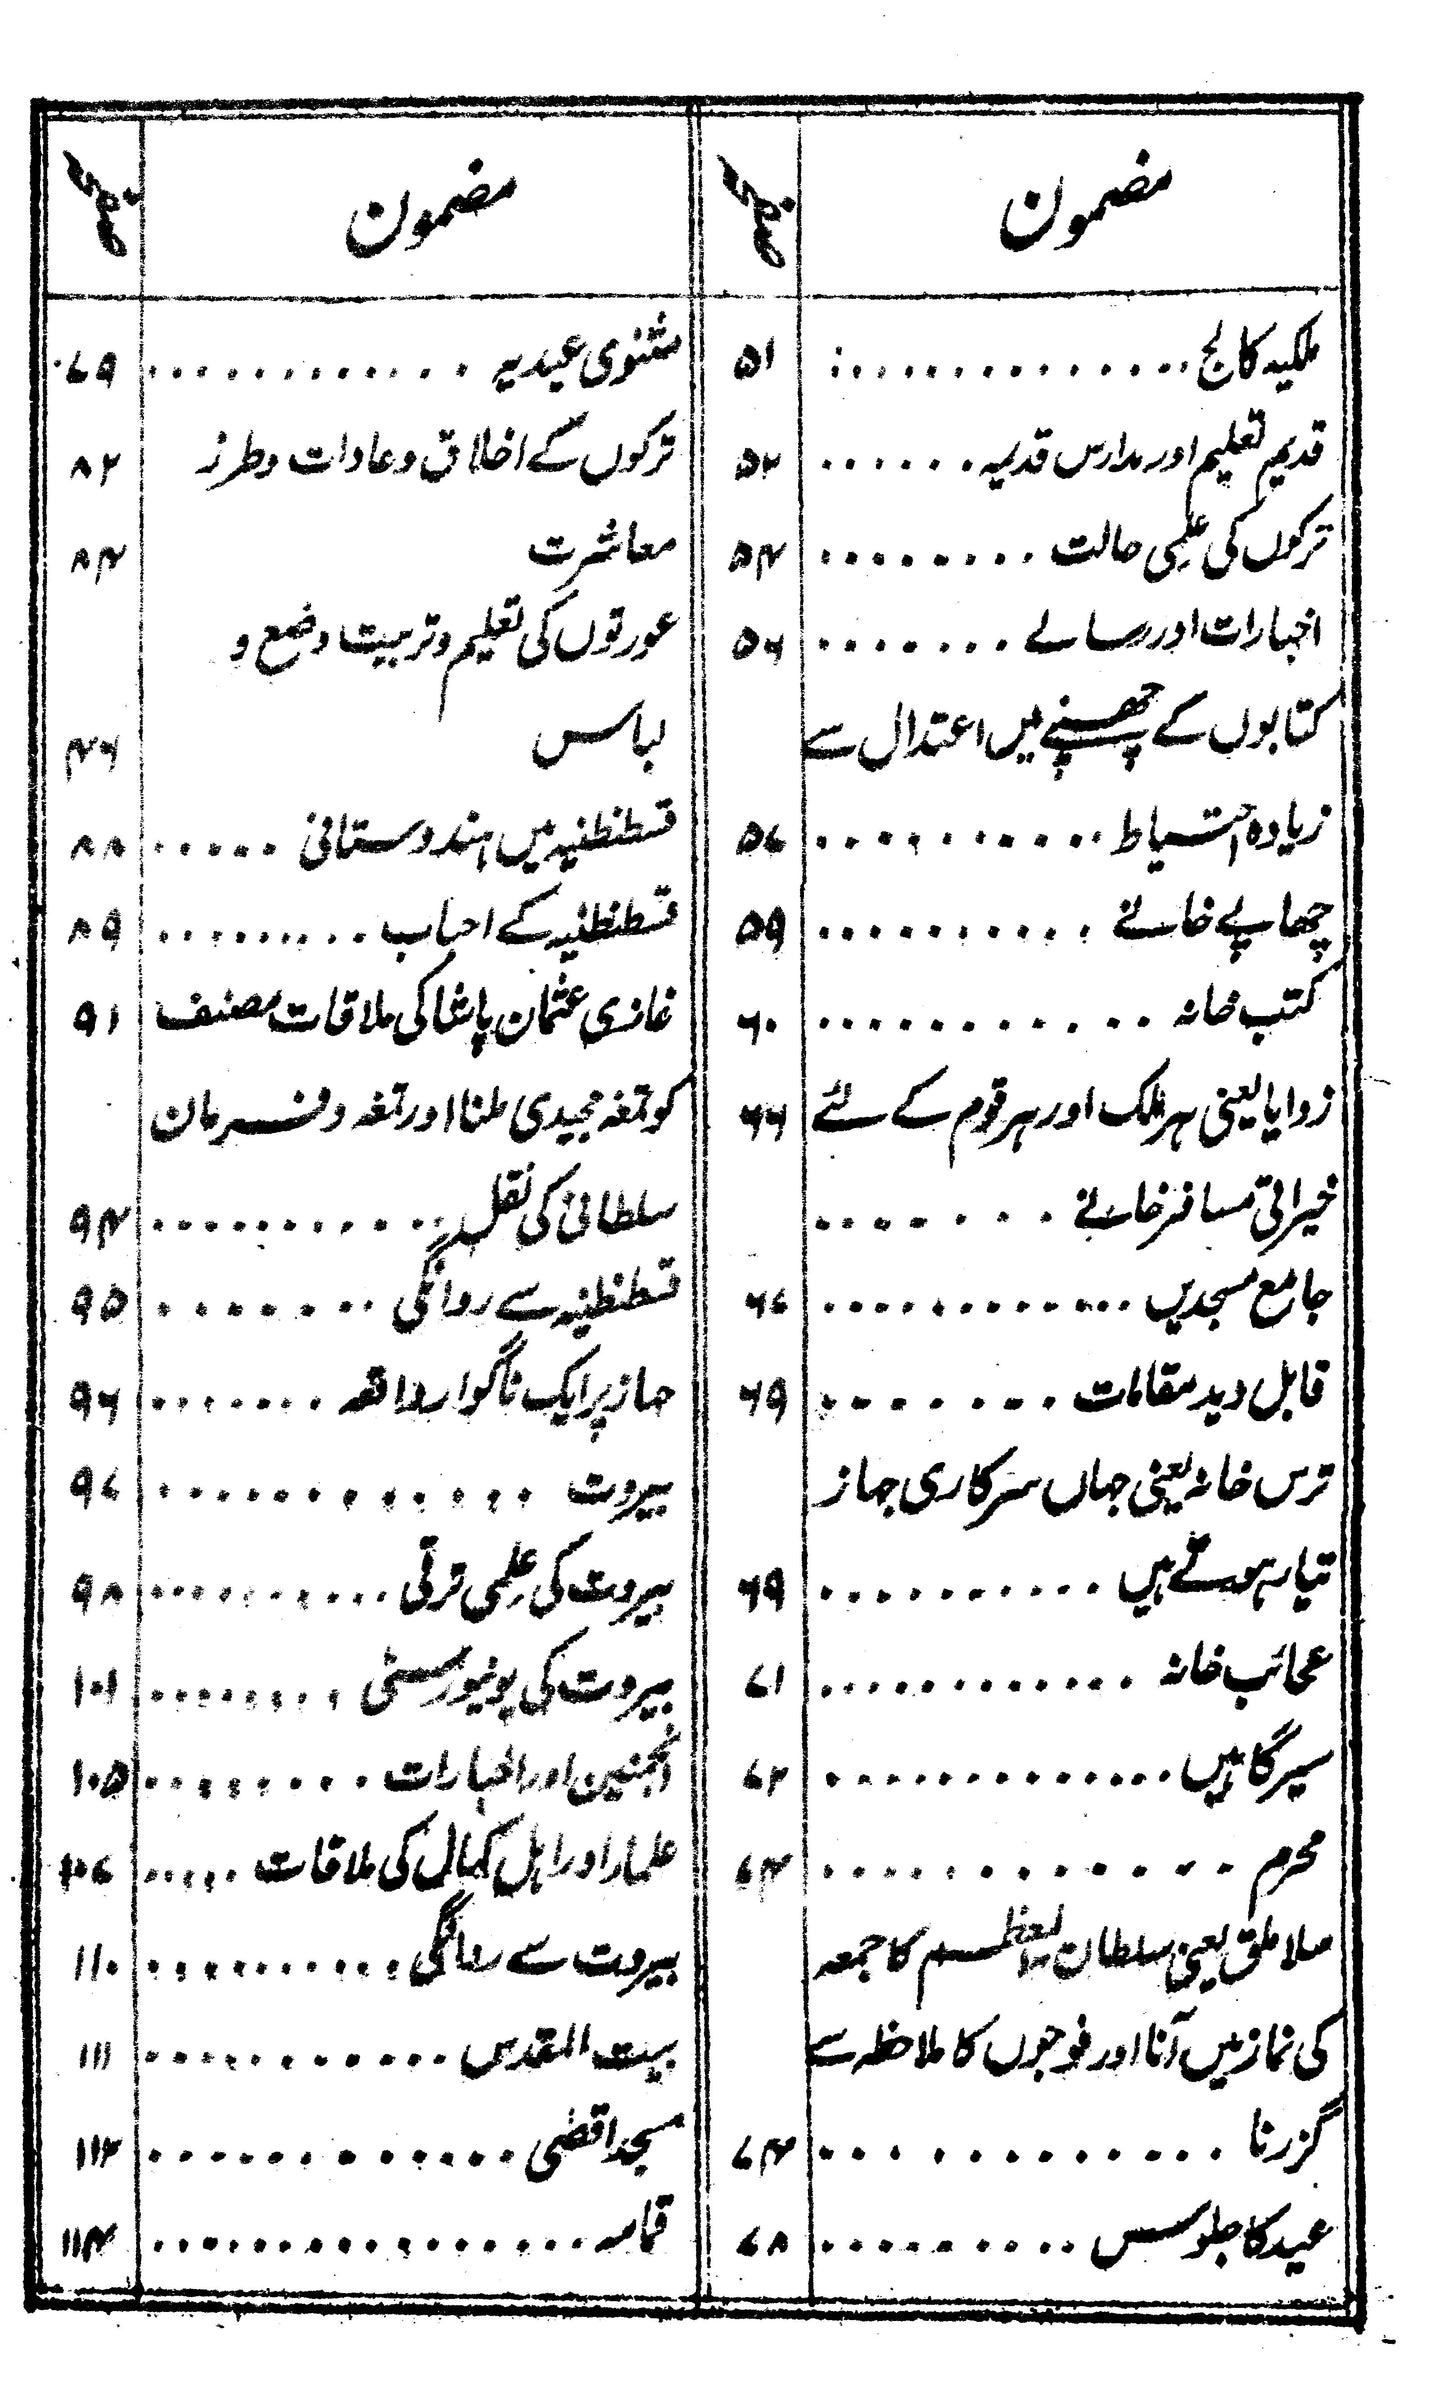 مضمون صفحہ
ملکیہ کالج .............. ۵۱
قدیم تعلیم اور مدارس قدیمہ ...... ۵۲
ترکوں کی علمی حالت ........ ۵۴
اخبارات اور رسالے ....... ۵۶
کتابوں کے چھپنے میں اعتدال سے
زیادہ احتیاط .......... ۵۷
چھاپے خانے .......... ۵۹
کتب خانہ ........... ۶۰
زوایا یعنی ہر ملک اور ہر قوم کے لئے ۶۶
خیراتی مسافر خانے .......
جامع مسجدیں ............ ۶۷
قابل دید مقامات ....... ۶۹
ترس خانہ یعنی جہاں سرکاری جہاز
تیار ہوتے ہیں .......... ۶۹
عجائب خانہ ............ ۷۱
سیرگاہیں ............. ۷۲
محرم ............ ۷۴
سلاملق یعنی سلطان المعظم کا جمعہ
کی نماز میں آنا اور فوجوں کا ملاحظہ سے
گزرنا ............. ۷۴
عید کا جلوس .......... ۷۸
مضمون صفحہ
مثنوی عیدیہ ............ ۷۹
ترکوں کے اخلاق و عادات و طرز ۸۲
معاشرت ۸۴
عورتوں کی تعلیم و تربیت وضع و
لباس ۴۶
قسطنطنیہ میں ہندوستانی ..... ۸۸
قسطنطنیہ کے احباب ......... ۸۹
غازی عثمان پاشا کی ملاقات مصنف ۹۱
کو تمغہ مجیدی ملنا اور تمغہ و فرمان
سلطانی کی نقل ........... ۹۴
قسطنطنیہ سے روانگی ........ ۹۵
جہاز پر ایک ناگوار واقعہ ....... ۹۶
بیروت ............ ۹۷
بیروت کی علمی ترقی .......... ۹۸
بیروت کی یونیورسٹی ........ ۱۰۱
انجمنیں اور اخبارات ........ ۱۰۵
علماء اور اہل کمال کی ملاقات ..... ۱۰۷
بیروت سے روانگی .......... ۱۱۰
بیت المقدس ........... ۱۱۱
مسجد اقصٰی ............ ۱۱۲
قمامہ ................ ۱۱۴